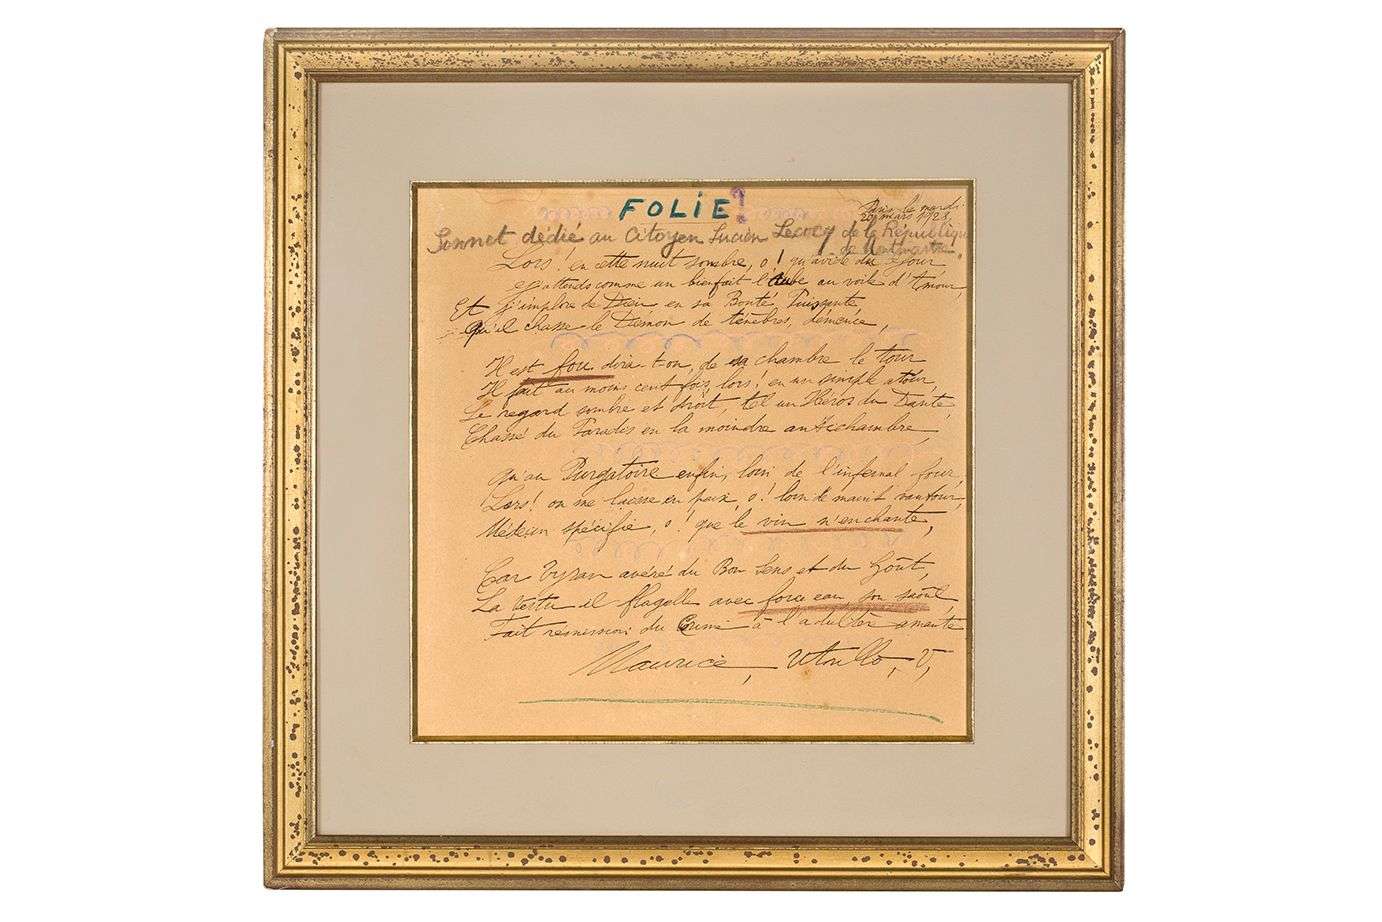 FOLIE!
Paris, le mardi
20 mars 1923
Sonnet dédié au Citoyen Lucien Lecocq de la République
de Montmartre.
Lors! en cette nuit sombre, o! qu'avide du jour
j'attends comme un bienfait l'Aube au voile d'Amour,
Et j'implore de Dieu en sa Bonté Puissante
qu'il chasse le Démon de ténèbres, démence,
Il est fou dira-t-on, de sa chambre le tour
Il fait au moins cent fois, lors! en un simple atour,
Le regard sombre et droit, tel un Héros du Dante
Chassé du Paradis en la moindre antichambre,
qu'au Purgatoire enfin, loin de l'infernal four,
Lors! on me laisse en paix, o! loin de maint vautour,
Médecin spécifie, o! que le vin n'enchante,
Car Tyran avéré du Bon Sens et du Goût,
La vertu il flagelle avec force eau son saoûl
Fait remission du Crime à l'adultère amante
Maurice, Utrillo, V,